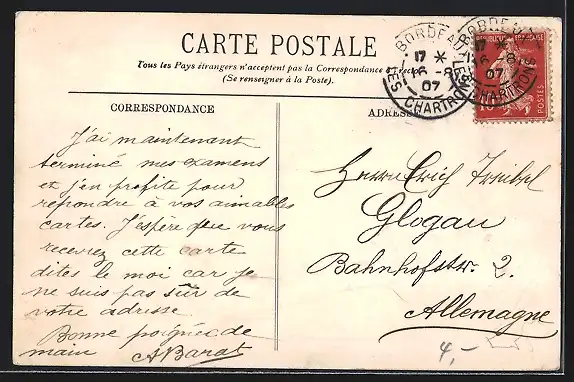 CARTE POSTALE
Tous les Pays étrangers n'acceptent pas la Correspondance au recto
(Se renseigner à la Poste).
BORDEAUX
LES CHARTRONS
17 *
6 - 8
07
BORDEAUX
LES CHARTRONS
17 *
6 - 8
07
POSTES
CORRESPONDANCE
ADRESSE
J'ai maintenant
terminé mes examens
et j'en profite pour
répondre à vos aimables
cartes. J'espère que vous
recevrez cette carte
dites le moi car je
ne suis pas sûr de
votre adresse
Bonne poignée de
main A Barat
Herrn Erich
Glogau
Bahnhofstr. 2.
Allemagne
4,-